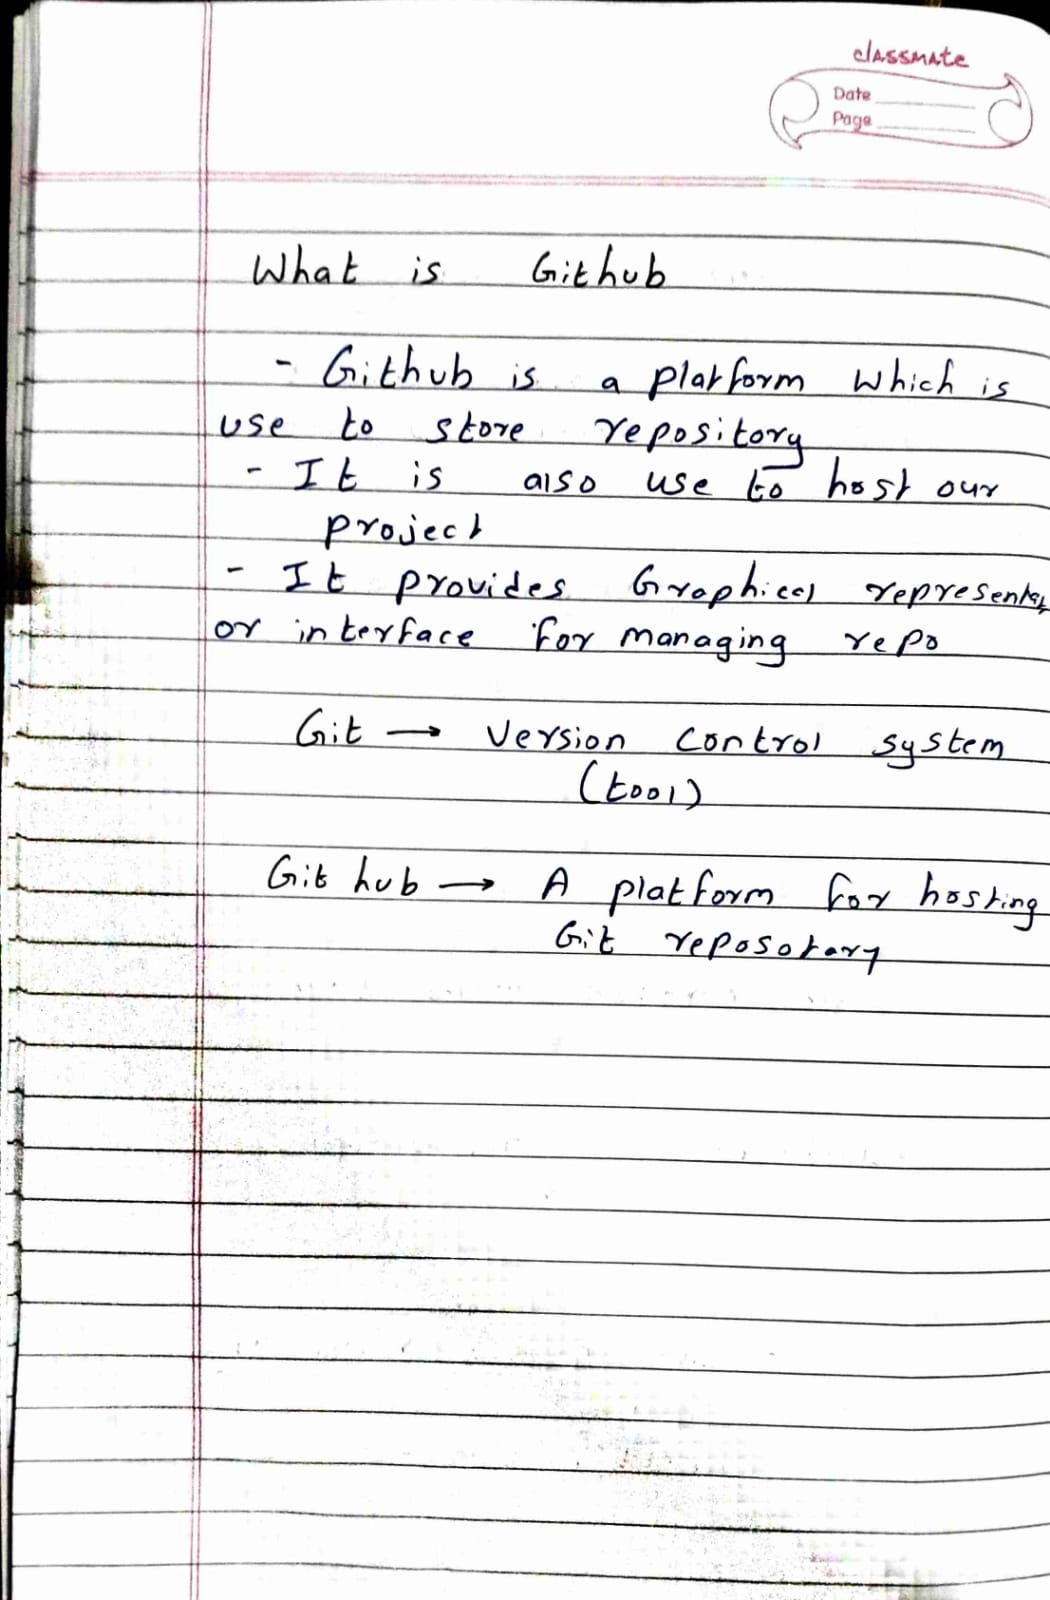 classmate
Date
Page
What is Github
- Github is a platform which is
use to store repository
- It is also use to host our
project
- It provides Graphical
or interface for managing repo
Git → Version control system
(tool)
Git hub → A platform for hosting
Git reposotary